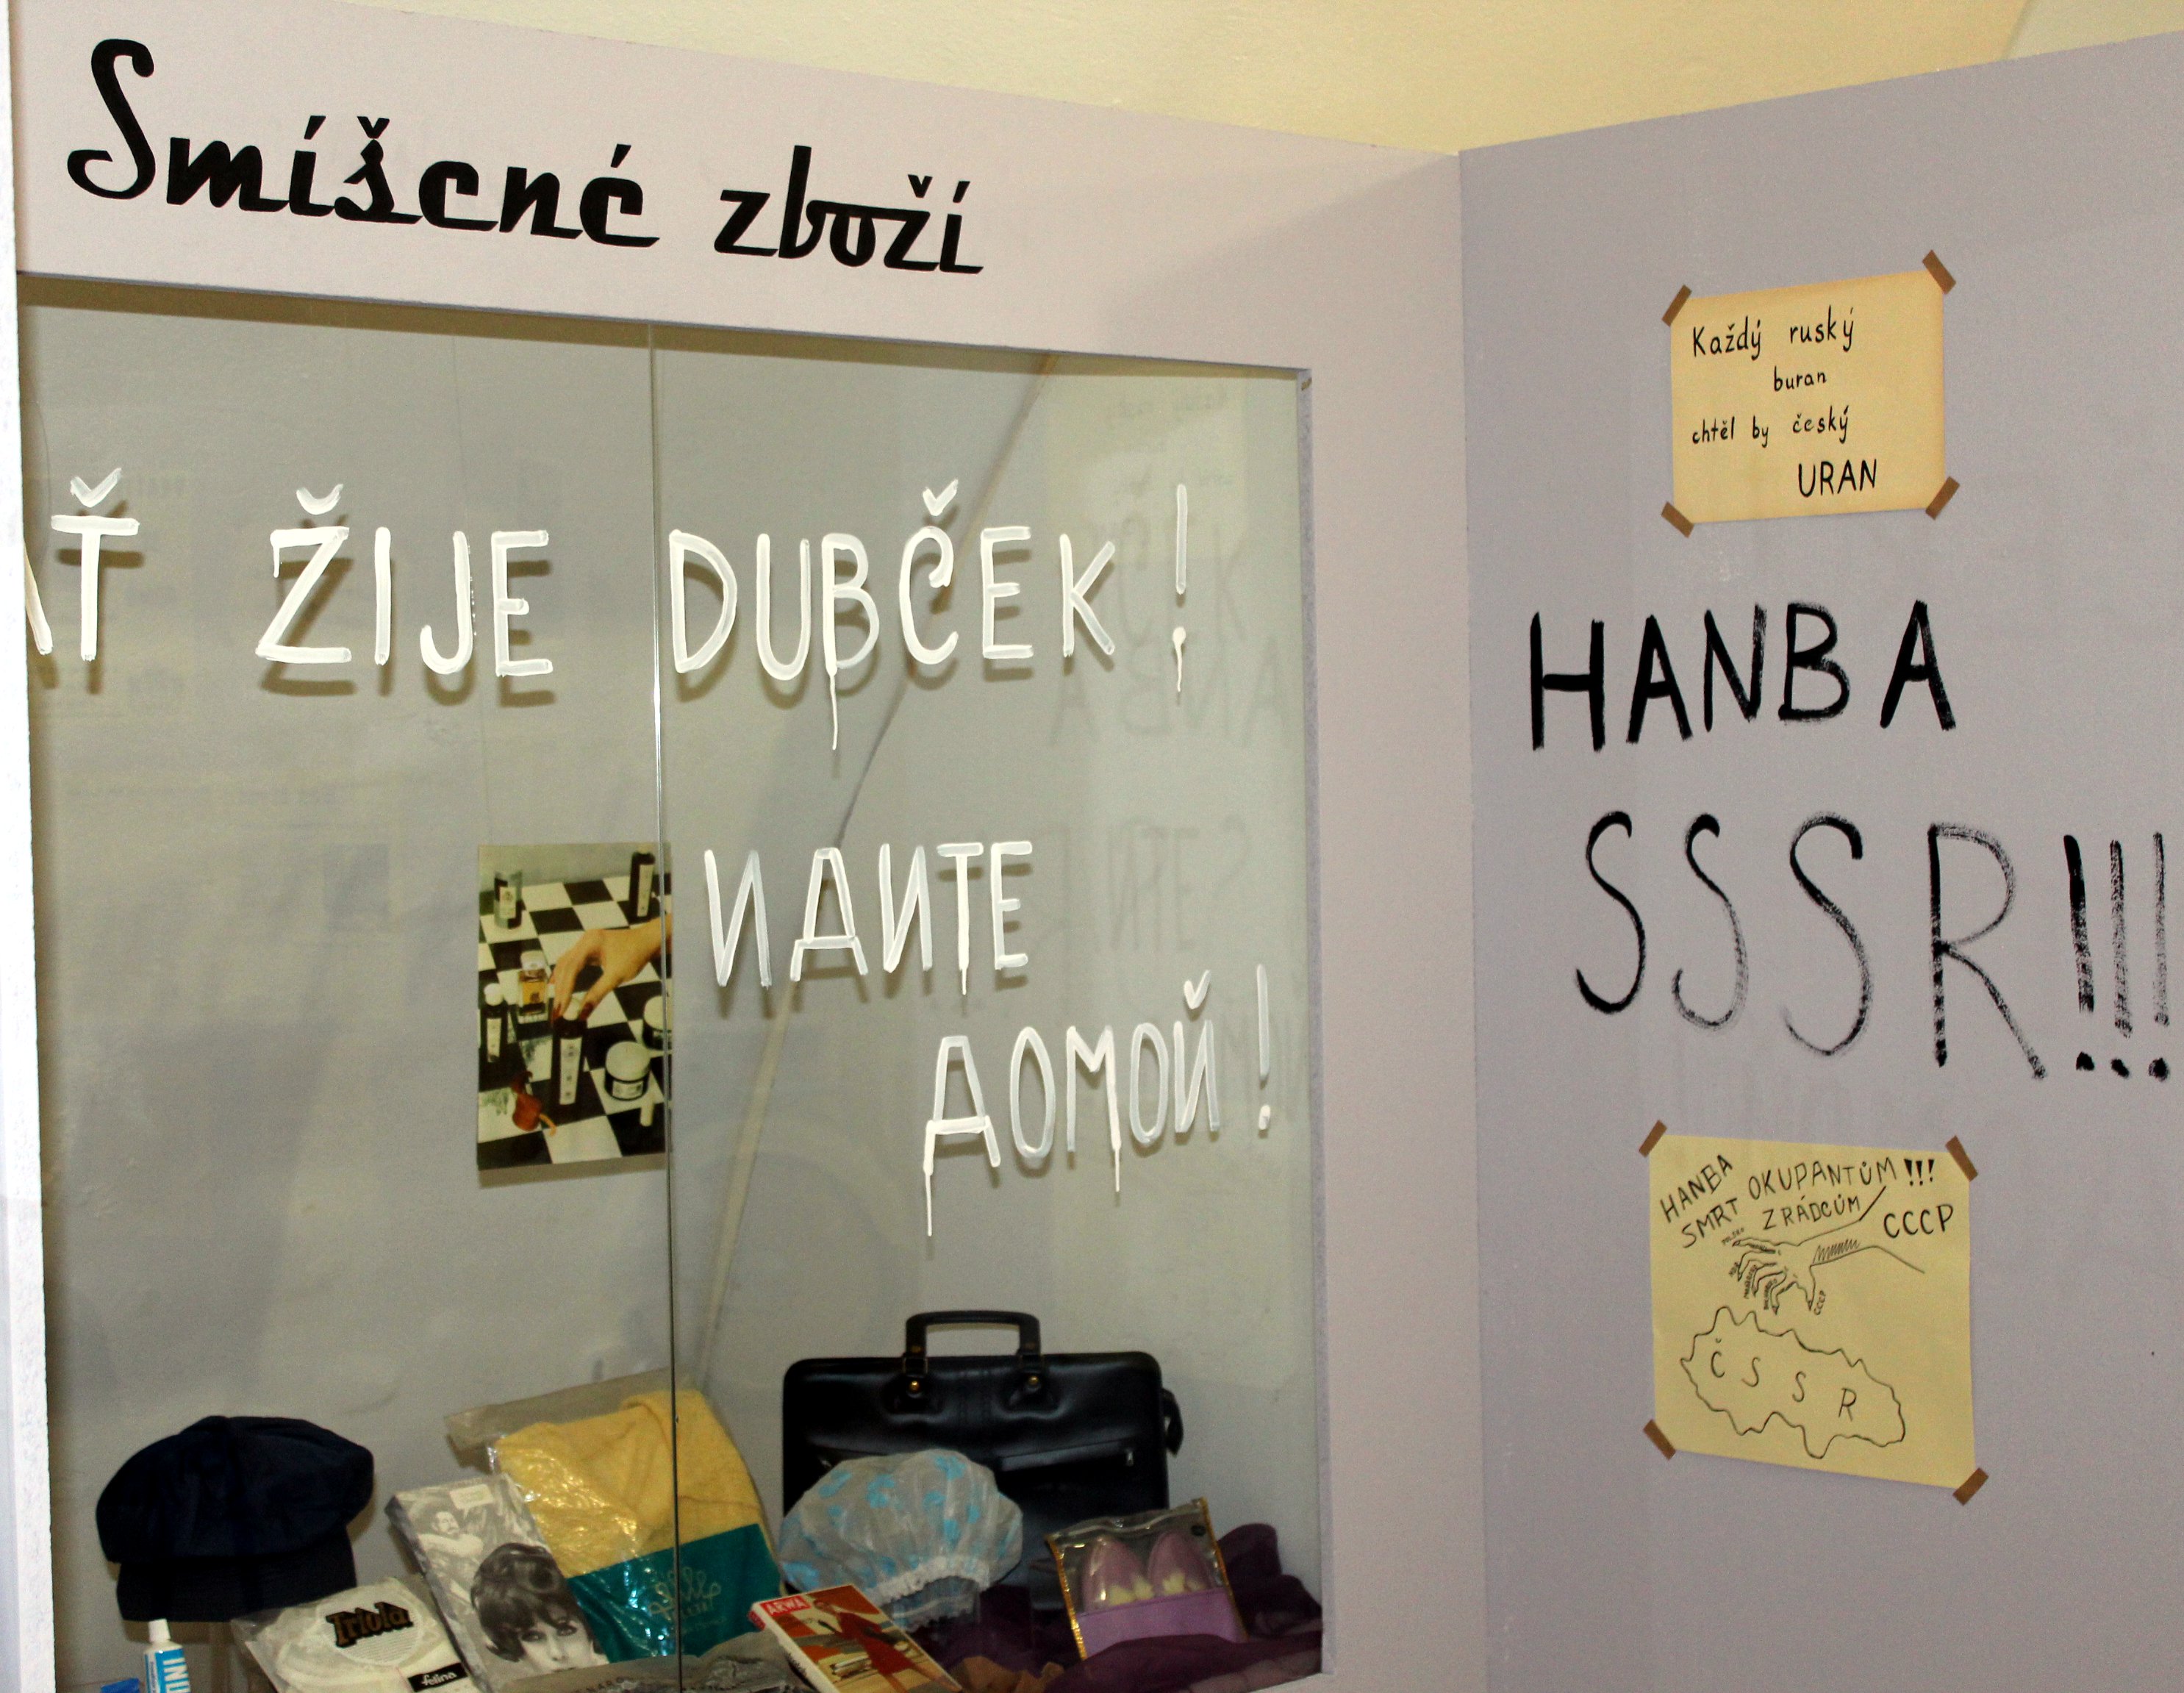 Smíšené zboží
AŤ ŽIJE DUBČEK!
ИДИТЕ
ДОМОЙ!
Každý ruský
buran
chtěl by český
URAN
HANBA
SSSR!!!
HANBA OKUPANTŮM!!!
SMRT ZRÁDCŮM
CCCP
CCCP
ČSSR
Triola
felina
ARWA
IND